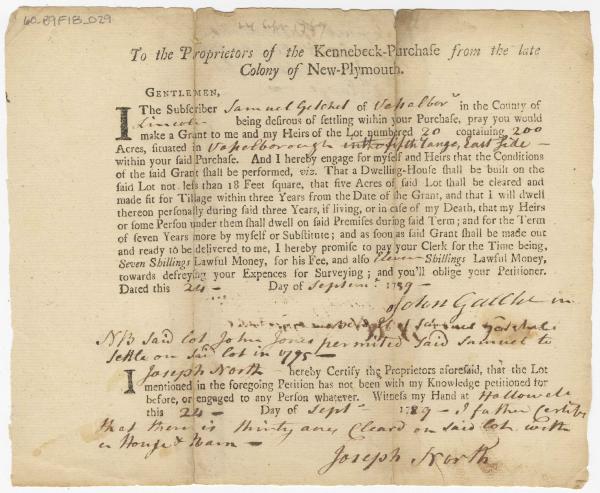 60-B9F1B_029
To the Proprietors of the Kennebeck-Purchase from the late
Colony of New-Plymouth.
GENTLEMEN,
I The Subscriber Samuel Getchel of Vassalboro in the County of
Lincoln being desirous of settling within your Purchase, pray you would
make a Grant to me and my Heirs of the Lot numbered 20 containing 200
Acres, situated in Vassalborough fifth range, East Side
within your said Purchase. And I hereby engage for myself and Heirs that the Conditions
of the said Grant shall be performed, viz. That a Dwelling-House shall be built on the
said Lot not less than 18 Feet square, that five Acres of said Lot shall be cleared and
made fit for Tillage within three Years from the Date of the Grant, and that I will dwell
thereon personally during said three Years, if living, or in case of my Death, that my Heirs
or some Person under them shall dwell on said Premises during said Term; and for the Term
of seven Years more by myself or Substitute; and as soon as said Grant shall be made out
and ready to be delivered to me, I hereby promise to pay your Clerk for the Time being,
Seven Shillings Lawful Money, for his Fee, and also Eleven Shillings Lawful Money,
towards defreying your Expences for Surveying; and you'll oblige your Petitioner.
Dated this 24 Day of Septem 1789
John
of Samuel
NB Said lot John Jones permited Said Samuel to
Settle on Said lot in 1775
I Joseph North hereby Certify the Proprietors aforesaid, that the Lot
mentioned in the foregoing Petition has not been with my Knowledge petitioned for
before, or engaged to any Person whatever. Witness my Hand at Hallowell
this 24 Day of Sept 1789 I father Certify
that there is thirty acres Cleard on said lot with
a House & Barn
Joseph North